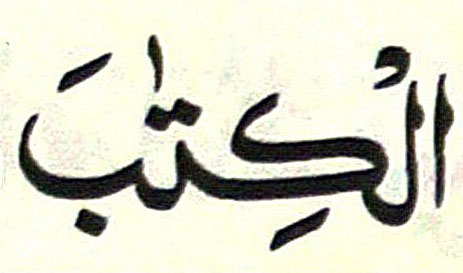 الْكِتٰبَ